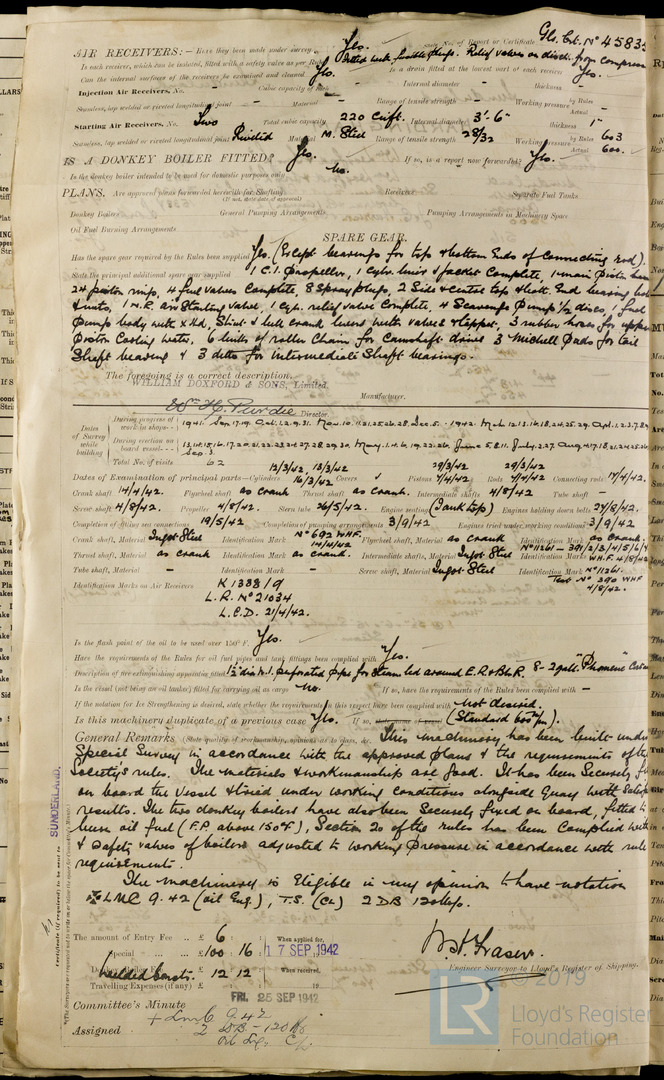 Gls. Cert. No 45835
AIR RECEIVERS:— Have they been made under survey Yes. State No. of Report or Certificate
Is each receiver, which can be isolated, fitted with a safety valve as per Rule Fitted with fusible plugs. Relief valves on disch. from compressor
Can the internal surfaces of the receivers be examined and cleaned Yes. Is a drain fitted at the lowest part of each receiver Yes.
Injection Air Receivers, No. - Cubic capacity of each - Internal diameter - thickness -
Seamless, lap welded or riveted longitudinal joint - Material - Range of tensile strength - Working pressure by Rules - Actual
Starting Air Receivers, No. Two Total cubic capacity 220 Cuft. Internal diameter 3'-6" thickness 1"
Seamless, lap welded or riveted longitudinal joint Riveted Material M. Steel Range of tensile strength 28/32 Working pressure by Rules 603 Actual 600.
IS A DONKEY BOILER FITTED? Yes. If so, is a report now forwarded? Yes.
Is the donkey boiler intended to be used for domestic purposes only No.
PLANS. Are approved plans forwarded herewith for Shafting Receivers Separate Fuel Tanks
(If not, state date of approval)
Donkey Boilers General Pumping Arrangements Pumping Arrangements in Machinery Space
Oil Fuel Burning Arrangements
SPARE GEAR.
Has the spare gear required by the Rules been supplied Yes. (Except bearings for top & bottom Ends of Connecting rod).
State the principal additional spare gear supplied 1 C.I. Propeller, 1 Cylr. liner & Jacket Complete, 1 main Piston
24 piston rings, 4 fuel valves Complete, 8 Spray plugs, 2 Side & centre top & bott. End bearing bolts
& nuts, 1 N.R. air Starting valve, 1 cyl. relief valve Complete, 4 Scavenge Pump 1/2 discs, 1 fuel
Pump body with Xhd, Strut & bell crank levers with valves & tappet, 3 rubber hoses for upper
Piston Cooling water. 6 links of roller Chain for Camshaft drive 3 Michell Pads for tail
Shaft bearing & 3 ditto for Intermediate Shaft bearings.
The foregoing is a correct description,
WILLIAM DOXFORD & SONS, Limited. Manufacturer.
Wm H. Purdie Director
Dates of Survey while building
During progress of work in shops - - 1941. Sep. 17. 19. Oct. 1. 2. 9. 31. Nov. 10. 11. 21. 25. 26. 28. Dec. 5. 1942. Mch 12. 13. 16. 18. 24. 25. 29. Apl. 1. 2. 3. 7. 8.
During erection on board vessel - - - 13. 14. 15. 16. 17. 20. 21. 22. 23. 24. 27. 28. 29. 30. May. 1. 4. 6. 19. 22. 26. June 5. 8. 11. July 1. 27. Aug 4. 17. 18. 21. 24. 25. 26.
Sep. 3.
Total No. of visits 62
Dates of Examination of principal parts—Cylinders 12/3/42, 13/3/42 16/3/42 Covers ✓ Pistons 29/3/42 7/4/42 Rods 29/3/42 7/4/42 Connecting rods 17/4/42.
Crank shaft 14/4/42. Flywheel shaft as crank Thrust shaft as crank. Intermediate shafts 4/8/42 Tube shaft -
Screw shaft 4/8/42. Propeller 4/8/42. Stern tube 26/5/42. Engine seating (Tank top) Engines holding down bolts 24/8/42.
Completion of fitting sea connections 19/5/42 Completion of pumping arrangements 3/9/42 Engines tried under working conditions 3/9/42
Crank shaft, Material Ingot Steel Identification Mark No 692 WHF. 14/4/42 Flywheel shaft, Material as crank Identification Mark as crank.
Thrust shaft, Material as crank Identification Mark as crank. Intermediate shafts, Material Ingot Steel Identification Marks No 11261 - 391/2/3/4/5/6/7 WHF. 4/8/42.
Tube shaft, Material - Identification Mark - Screw shaft, Material Ingot Steel Identification Mark No 11261.
Test No 390 WHF
4/8/42.
Identification Marks on Air Receivers K 1388/9
L.R. No 21034
L.C.D. 21/4/42.
Is the flash point of the oil to be used over 150°F. Yes.
Have the requirements of the Rules for oil fuel pipes and tank fittings been complied with Yes.
Description of fire extinguishing apparatus fitted 1½" dia W.I. perforated pipe for Steam led around E.R & Blr R. 8 - 2 gall. "Phomene"
Is the vessel (not being an oil tanker) fitted for carrying oil as cargo No. If so, have the requirements of the Rules been complied with -
If the notation for Ice Strengthening is desired, state whether the requirements in this respect have been complied with not desired.
Is this machinery duplicate of a previous case Yes. If so, (Standard 600 m/m).
General Remarks (State quality of workmanship, opinions as to class, &c. This machinery has been built under
Special Survey in accordance with the approved plans & the requirements of the
Society's rules. The materials & workmanship are good. It has been Securely
on board the vessel & tried under working conditions alongside Quay with
results. The two donkey boilers have also been Securely fixed on board, fitted to
burn oil fuel (F.P. above 150°F), Section 20 of the rules has been Complied with
& Safety valves of boilers adjusted to working Pressure in accordance with rule
requirement.
The machinery is Eligible in my opinion to have notation
✠ LMC 9.42 (oil Eng.), T.S. (CL) 2 DB 120 lbs.
SUNDERLAND.
Certificate (if required) to be sent to
The amount of Entry Fee .. £ 6 : : When applied for,
Special .. .. £ 100 : 16 : 17 SEP 1942
Welded Const. £ 12 : 12 When received,
Travelling Expenses (if any) £ : : 19
W.H. Fraser.
Engineer Surveyor to Lloyd's Register of Shipping.
Committee's Minute FRI. 25 SEP 1942
Assigned + Lmc 9.42
2 DB - 120 lb
Oil Eng. CL
© 2019
LR
Lloyd's Register
Foundation